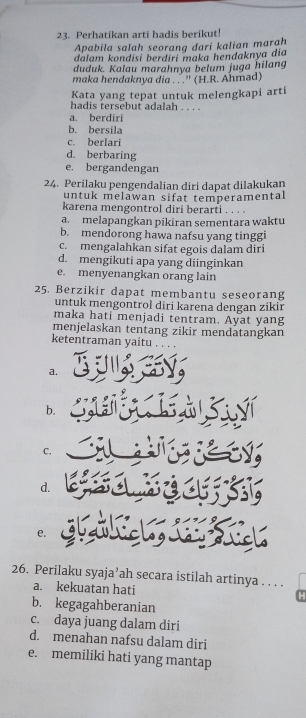 23. Perhatikan arti hadis berikut!
Apabila salah seorang dari kalian marah
dalam kondisi berdiri maka hendaknya dia
duduk. Kalau marahnya belum juga hilang
maka hendaknya dia . . ." (H.R. Ahmad)
Kata yang tepat untuk melengkapi arti
hadis tersebut adalah . . . .
a. berdiri
b. bersila
c. berlari
d. berbaring
e. bergandengan
24. Perilaku pengendalian diri dapat dilakukan
untuk melawan sifat temperamental
karena mengontrol diri berarti . . . .
a. melapangkan pikiran sementara waktu
b. mendorong hawa nafsu yang tinggi
c. mengalahkan sifat egois dalam diri
d. mengikuti apa yang diinginkan
e. menyenangkan orang lain
25. Berzikir dapat membantu seseorang
untuk mengontrol diri karena dengan zikir
maka hati menjadi tentram. Ayat yang
menjelaskan tentang zikir mendatangkan
ketentraman yaitu . . . .
a.
b. أَلَا بِذِكْرِ اللَّهِ تَطْمَئِنُّ الْقُلُوبُ
c.
d.
e.
26. Perilaku syaja'ah secara istilah artinya . . . .
a. kekuatan hati
b. kegagahberanian
c. daya juang dalam diri
d. menahan nafsu dalam diri
e. memiliki hati yang mantap
H